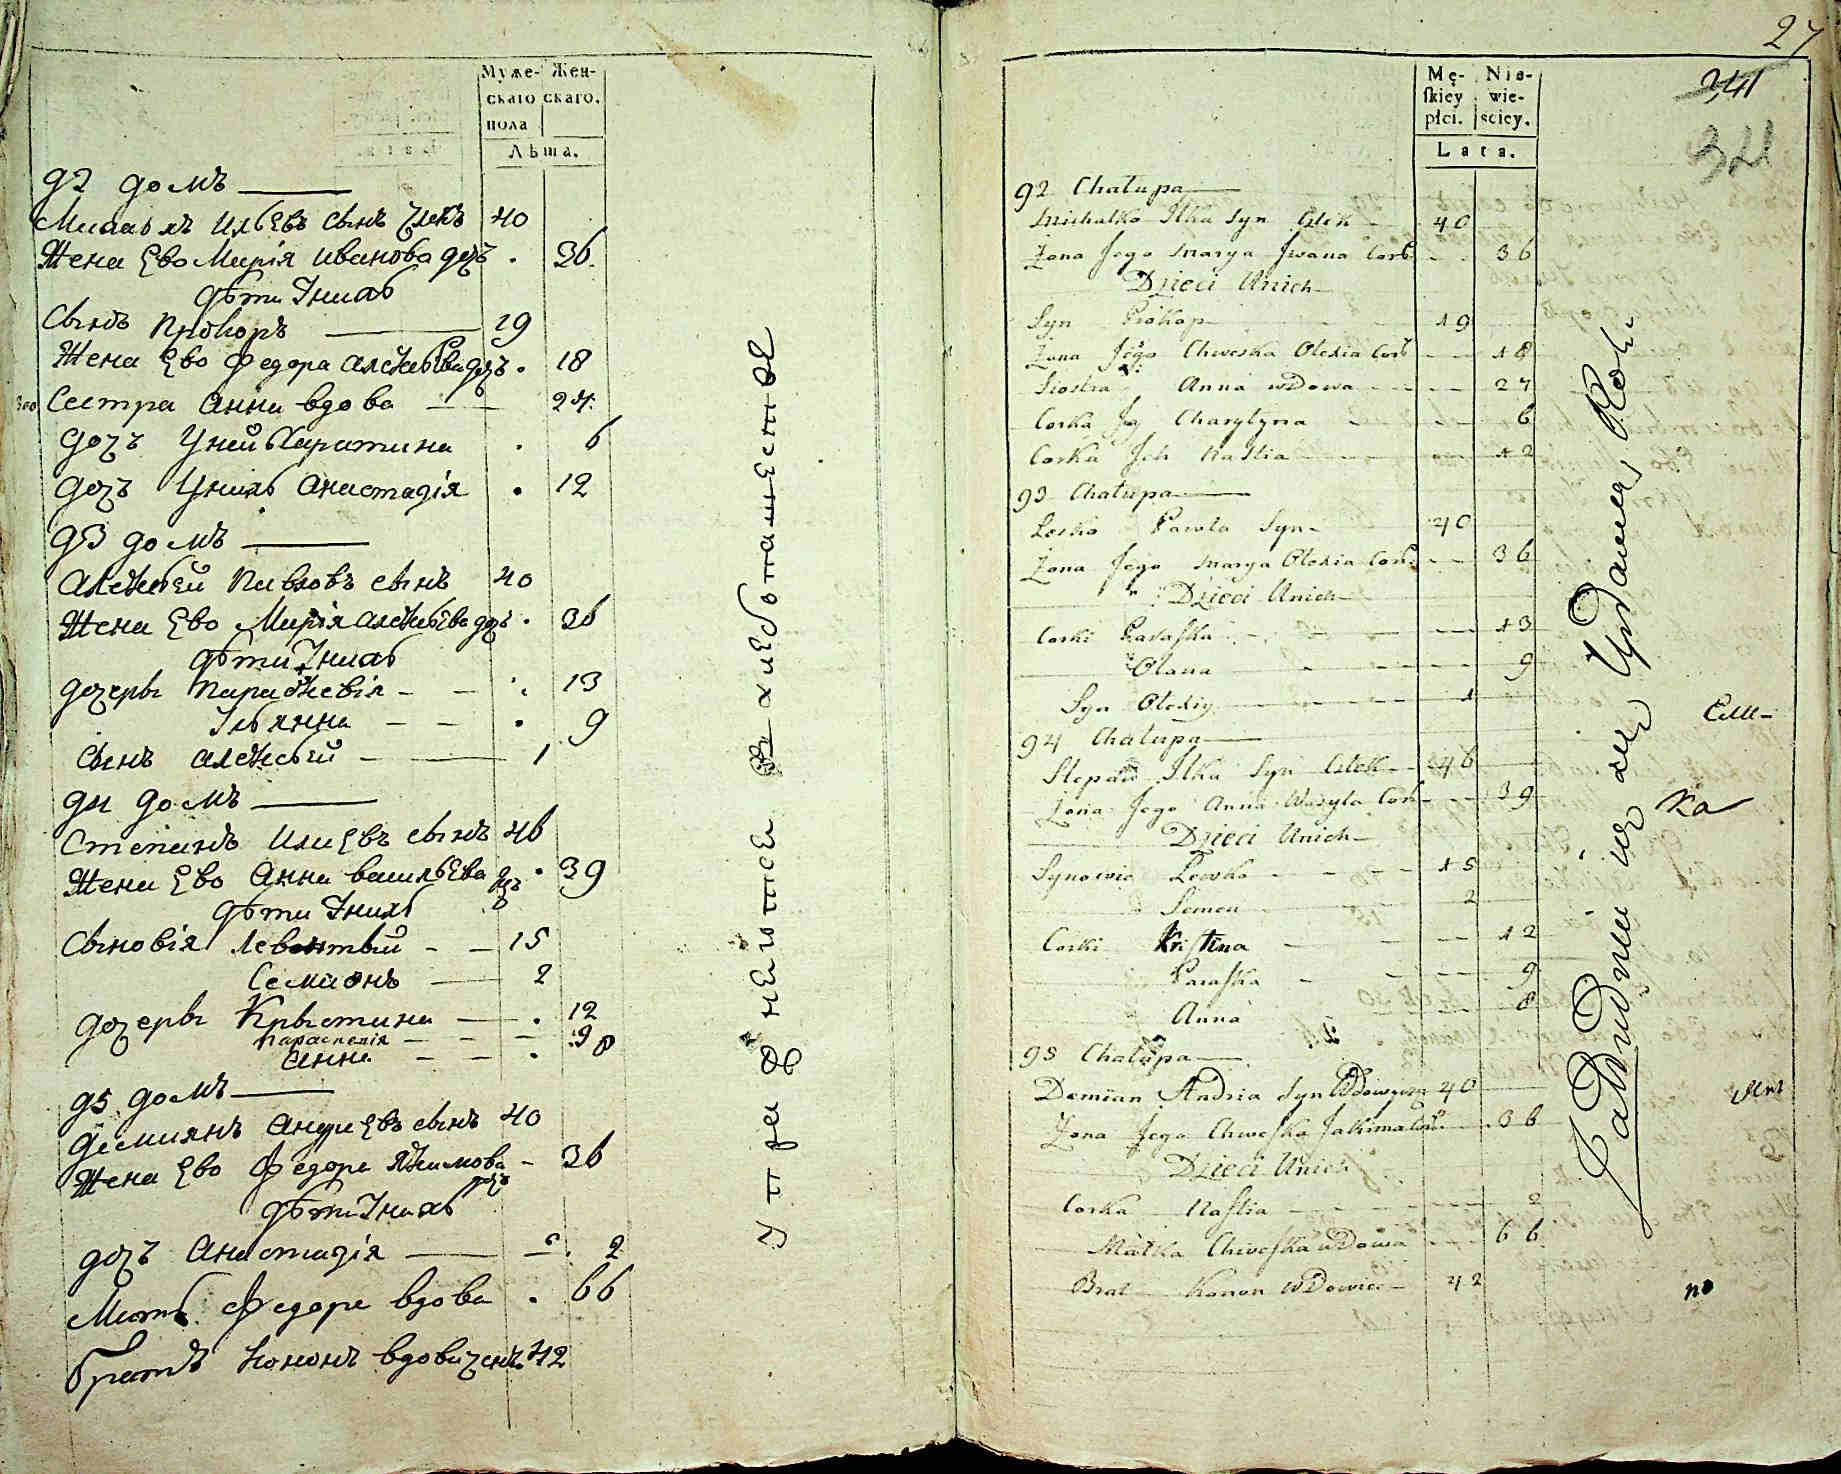 Муже- Жен-
скаго скаго.
пола
Лѣта.
92 домъ
Михайлъ Ильевъ сынъ 40
Жена Ево Марія Иванова дочъ 36
Дѣти Уныхъ
Сынъ Прокоръ 19
Жена Ево Федора Алексѣева дочъ 18
Сестра Анна вдова 24
Дочъ Уней Харитина 6
Дочъ Уныхъ Анастадія 12
93 домъ
Алексѣй Павловъ сынъ 40
Жена Ево Марія Алексѣева дочъ 36
Дѣти Уныхъ
Дочеры Параскевія 13
Ульянна 9
Сынъ Алексѣй 1
94 домъ
Степанъ Илиевъ сынъ 46
Жена Ево Анна васильева дочъ 39
Дѣти Уныхъ
Сыновія Левонтый 15
Семионъ 2
Дочеры Крыстина 12
Параскевія 9
Анна 8
95 домъ
Демиянъ Андриевъ сынъ 40
Жена Ево Федора Якимова дочъ 36
Дѣти Уныхъ
дочъ Анастадія 2
Мать Федора вдова 66
Братъ Кононъ вдовиченъ 42
27
341
321
Mę- Nie-
skiey wie-
płci. sciey.
Lata.
92 Chałupa
Michałko Ilka Syn 40
Żona Jego Marya Jwana Cor 36
Dzieci Unich
Syn Prokop 19
Żona Jego Chweska Olexia Cor 18
Siostra Anna wDowa 24
Corka Jey Charytyna 6
Corka Jch Nastia 12
93 Chałupa
Lesko Pawła Syn 40
Żona Jego Marya Olexia Cor 36
Dzieci Unich
Corki Paraska 13
Olana 9
Syn Olexiy 1
94 Chałupa
Stepan Ilka Syn 46
Żona Jego Anna Wasyla Cor 39
Dzieci Unich
Synowie Lewko 15
Semen 2
Corki Kristina 12
Paraska 9
Anna 8
95 Chałupa
Demian Andria Syn 40
Żona Jego Chweska Jakima Cor 36
Dzieci Unich
Corka Nastia 2
Matka Chweska wDowa 66
Brat Konon wDowiec 42
ка
по